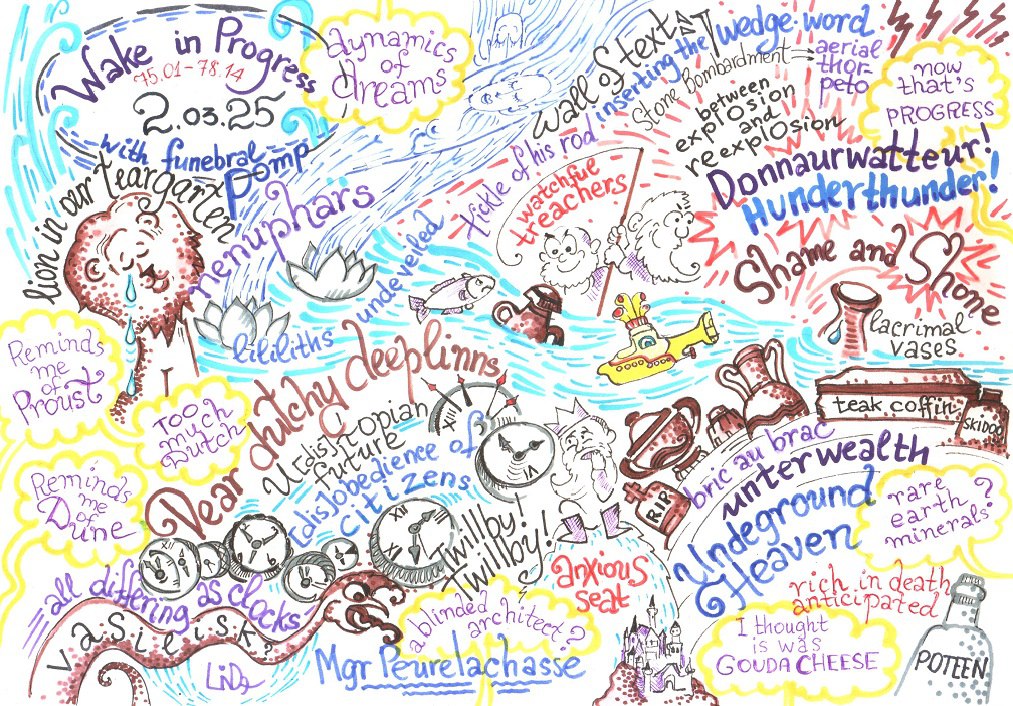 Wake in Progress
75.01-78.14
2.03.25
with funebral pomp
dynamics
of
dreams
wall of text
inserting the wedge.word
Stone Bombardment → aerial
thor-
peto
between
explosion
and
reexplosion
now
that's
PROGRESS
Donnaurwatteur!
Hunderthunder!
Shame and Shone
lacrimal
vases
tickle of his rod
watchful
treachers
lion in our teargarten
nenuphars
undeveiled
lililiths
Reminds
me
of
Proust
TOO
much
Dutch
Dear dutchy deeplinns
U(dis)topian
future
(dis)obedience of
citizens
Reminds
me
of
Dune
XII
VI
XII
teak coffin
SKIDOO
bric au brac
RIP
unterwealth
Undeground
Heaven
rare
earth
minerals?
Twillby!
Twillby!
anxious
seat
all differing as clocks
Vasilisk?
LiDs
a blinded architect?
Mgr Peurelachasse
rich in death
anticipated
I thought
is was
GOUDA CHEESE
POTEEN